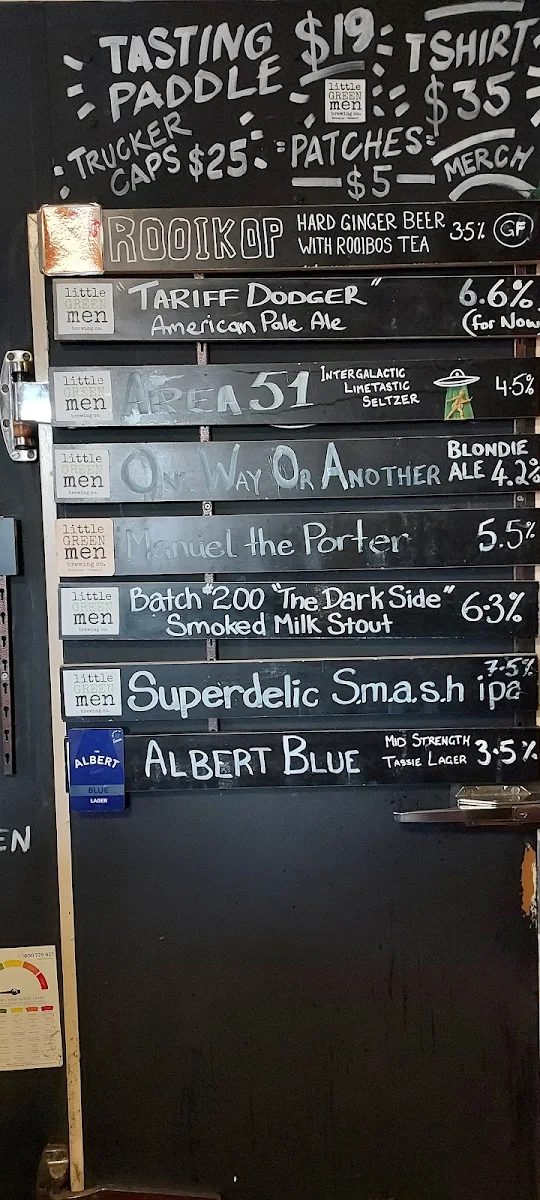 TASTING PADDLE $19
TSHIRT $35
little GREEN men brewing co.
TRUCKER CAPS $25
PATCHES $5
MERCH
ROOIKOP HARD GINGER BEER WITH ROOIBOS TEA 3.5% GF
little GREEN men brewing co.
"TARIFF DODGER" 6.6%
American Pale Ale (for Now
little GREEN men brewing co.
AREA 51 INTERGALACTIC LIMETASTIC SELTZER 4.5%
little GREEN men brewing co.
ONE WAY OR ANOTHER BLONDIE ALE 4.2%
little GREEN men brewing co.
Manuel the Porter 5.5%
little GREEN men brewing co.
Batch #200 "The Dark Side" 6.3%
Smoked Milk Stout
little GREEN men brewing co.
Superdelic S.m.a.s.h ipa 7.5%
ALBERT BLUE LAGER
ALBERT BLUE MID STRENGTH TASSIE LAGER 3.5%
EN